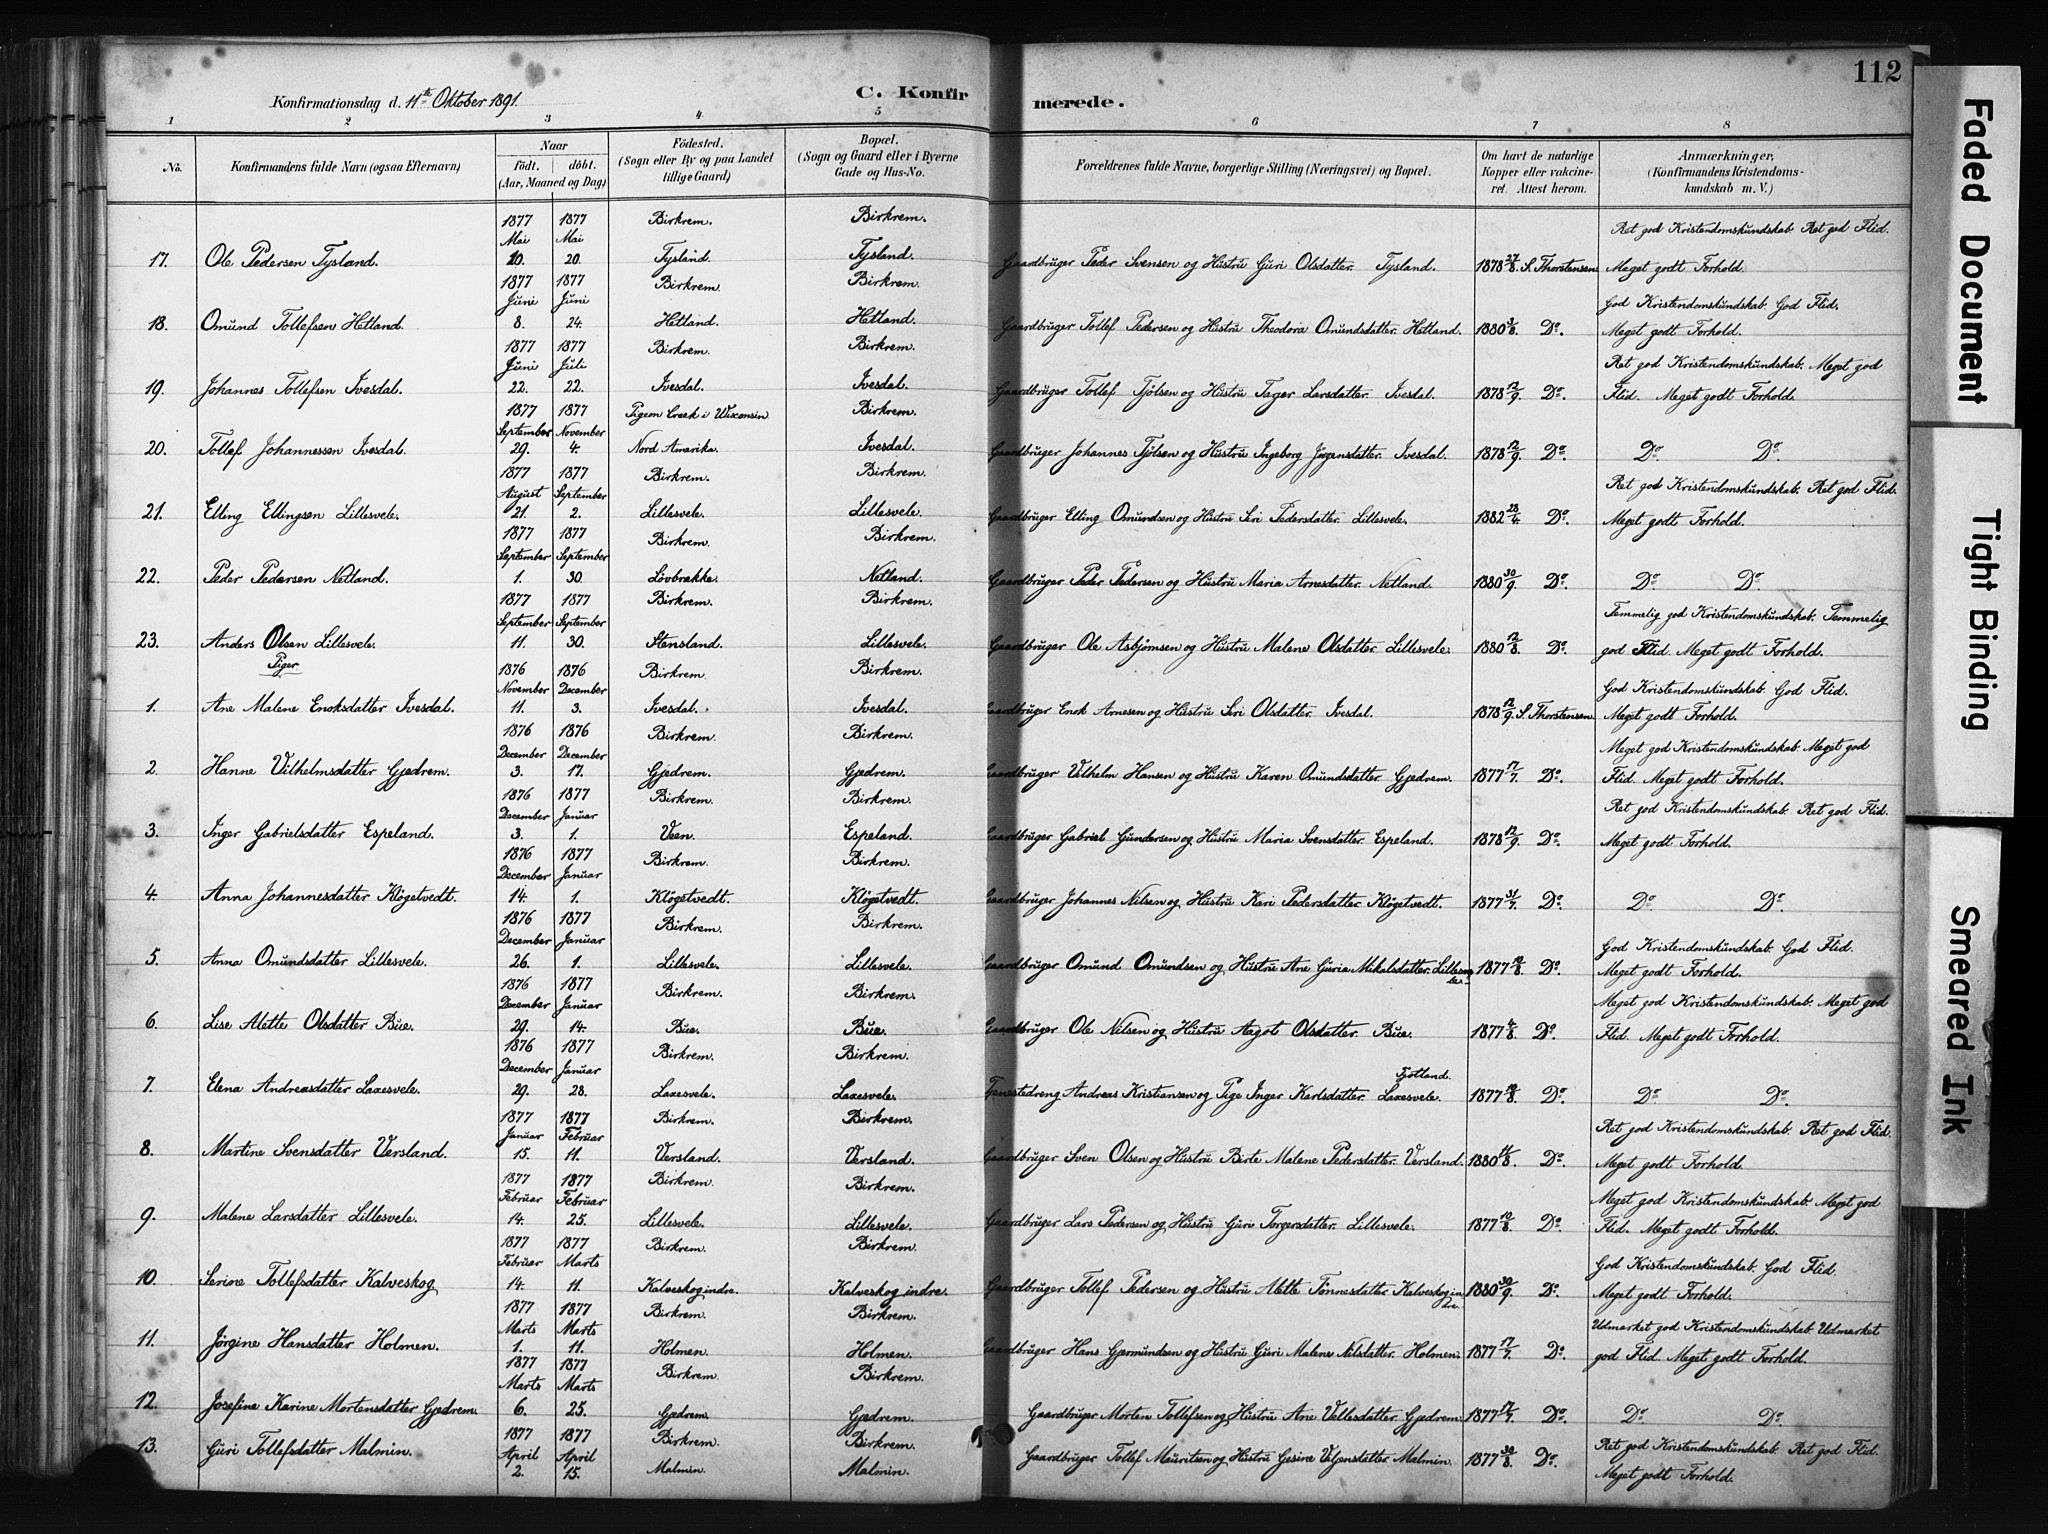 112
Konfirmationsdag d. 11te Oktober 1891.
C. Konfirmerede.
1 2 3 4 5 6 7 8
No. Konfirmandens fulde Navn (ogsaa Efternavn) Naar födt. döbt. (Aar, Maaned og Dag) Födested. (Sogn eller By og paa Landet tillige Gaard) Bopæl. (Sogn og Gaard eller i Byerne Gade og Hus-No. Forældrenes fulde Navne, borgerlige Stilling (Næringsvei) og Bopæl. Om havt de naturlige Kopper eller vakcineret. Attest herom. Anmærkninger, (Konfirmandens Kristendomskundskab m. V.)
1877 1877 Birkrem. Birkrem. Ret god Kristendomskundskab. Ret god Flid.
Mai Mai
17. Ole Pedersen Tysland. 10. 20. Tysland. Tysland. Gaardbruger Peder Svensen og Hustru Guri Olsdatter. Tysland. 1878 27/8. S. Thorstensen Meget godt Forhold.
1877 1877 Birkrem. Birkrem.
Juni Juni God Kristendomskundskab. God Flid.
18. Omund Tollefsen Hetland. 8. 24. Hetland. Hetland. Gaardbruger Tollef Pedersen og Hustru Theodora Omundsdatter. Hetland. 1880 3/8. Do. Meget godt Forhold.
1877 1877 Birkrem. Birkrem.
Juni Juli Ret god Kristendomskundskab. Meget god
19. Johannes Tollefsen Ivesdal. 22. 22. Ivesdal. Ivesdal. Gaardbruger Tollef Tjølsen og Hustru Tager Larsdatter. Ivesdal. 1878 12/9. Do. Flid. Meget godt Forhold.
1877 1877 Pigeon Creek i Wisconsin Birkrem.
September November
20. Tollef Johannessen Ivesdal. 29. 4. Nord Amerika. Ivesdal. Gaardbruger Johannes Tjølsen og Hustru Ingeborg Jørgensdatter. Ivesdal. 1878 12/9. Do. Do. Do.
1877 1877 Birkrem. Birkrem.
August September Ret god Kristendomskundskab. Ret god Flid.
21. Elling Ellingsen Lillesvele. 21. 2. Lillesvele. Lillesvele. Gaardbruger Elling Omundsen og Hustru Siri Pedersdatter. Lillesvele. 1882 28/4. Do. Meget godt Forhold.
1877 1877 Birkrem. Birkrem.
September September
22. Peder Pedersen Netland. 1. 30. Løvbrække. Netland. Gaardbruger Peder Pedersen og Hustru Maria Arnesdatter. Netland. 1880 30/9. Do. Do. Do.
1877 1877 Birkrem. Birkrem.
September September Temmelig god Kristendomskundskab. Temmelig
23. Anders Olsen Lillesvele. 11. 30. Stensland. Lillesvele. Gaardbruger Ole Asbjørnsen og Hustru Malene Olsdatter. Lillesvele. 1880 12/8. Do. god Flid. Meget godt Forhold.
Piger
1876 1876 Birkrem. Birkrem.
November December God Kristendomskundskab. God Flid.
1. Ane Malene Enoksdatter Ivesdal. 11. 3. Ivesdal. Ivesdal. Gaardbruger Enok Arnesen og Hustru Siri Olsdatter. Ivesdal. 1878 12/9. S. Thorstensen Meget godt Forhold.
1876 1876 Birkrem. Birkrem.
December December Meget god Kristendomskundskab. Meget god
2. Hanne Vilhelmsdatter Gjedrem. 3. 17. Gjedrem. Gjedrem. Gaardbruger Vilhelm Hansen og Hustru Karen Omundsdatter. Gjedrem. 1877 17/7. Do. Flid. Meget godt Forhold.
1876 1877 Birkrem. Birkrem.
December Januar Ret god Kristendomskundskab. Ret god Flid.
3. Inger Gabrielsdatter Espeland. 3. 1. Veen. Espeland. Gaardbruger Gabriel Gundersen og Hustru Maria Svensdatter. Espeland. 1878 12/9. Do. Meget godt Forhold.
1876 1877 Birkrem. Birkrem.
December Januar
4. Anna Johannesdatter Kløgetvedt. 14. 1. Kløgetvedt. Kløgetvedt. Gaardbruger Johannes Nilsen og Hustru Kari Pedersdatter. Kløgetvedt. 1877 31/7. Do. Do. Do.
1876 1877 Birkrem. Birkrem.
December Januar God Kristendomskundskab. God Flid.
5. Anna Omundsdatter Lillesvele. 26. 1. Lillesvele. Lillesvele. Gaardbruger Omund Omundsen og Hustru Ane Guria Mikalsdatter. Lillesvele. 1877 18/8. Do. Meget godt Forhold.
1876 1877 Birkrem. Birkrem.
December Januar Meget god Kristendomskundskab. Meget god
6. Lise Alette Olsdatter Bue. 29. 14. Bue. Bue. Gaardbruger Ole Nilsen og Hustru Aagot Olsdatter. Bue. 1877 4/8. Do. Flid. Meget godt Forhold.
1876 1877 Birkrem. Birkrem.
December Januar Fjotland.
7. Elena Andreasdatter Laxesvele. 29. 28. Laxesvele. Laxesvele. Tjenestedreng Andreas Kristiansen og Pige Inger Karlsdatter. Laxesvele. 1877 18/8. Do. Do. Do.
1877 1877 Birkrem. Birkrem.
Januar Februar Ret god Kristendomskundskab. Ret god Flid.
8. Martine Svensdatter Versland. 15. 11. Versland. Versland. Gaardbruger Sven Olsen og Hustru Birte Malene Pedersdatter. Versland. 1880 11/8. Do. Meget godt Forhold.
1877 1877 Birkrem. Birkrem.
Februar Februar Meget god Kristendomskundskab. Meget god
9. Malene Larsdatter Lillesvele. 14. 25. Lillesvele. Lillesvele. Gaardbruger Lars Pedersen og Hustru Guri Torgersdatter. Lillesvele. 1877 10/8. Do. Flid. Meget godt Forhold.
1877 1877 Birkrem. Birkrem.
Februar Marts God Kristendomskundskab. God Flid.
10. Serine Tollefsdatter Kalveskog 14. 11. Kalveskog indre. Kalveskog indre. Gaardbruger Tollef Pedersen og Hustru Mette Tønnesdatter Kalveskog indre. 1880 30/9. Do. Meget godt Forhold.
1877 1877 Birkrem. Birkrem.
Marts Marts Udmærket god Kristendomskundskab. Udmærket
11. Jørgine Hansdatter Holmen. 1. 11. Holmen. Holmen. Gaardbruger Hans Gjermundsen og Hustru Guri Malene Nilsdatter. Holmen. 1877 17/7. Do. god Flid. Meget godt Forhold.
1877 1877 Birkrem. Birkrem.
Marts Marts
12. Josefine Karine Mortensdatter Gjedrem. 6. 25. Gjedrem. Gjedrem. Gaardbruger Morten Tollefsen og Hustru Ane Vellesdatter. Gjedrem. 1877 17/7. Do. Do. Do.
1877 1877 Birkrem. Birkrem.
April April Ret god Kristendomskundskab. Ret god Flid.
13. Guri Tollefsdatter Malmin. 2. 15. Malmin. Malmin. Gaardbruger Tollef Mauritsen og Hustru Gesine Valjensdatter Malmin. 1877 30/8. Do. Meget godt Forhold.
Faded Document
Tight Binding
Smeared Ink